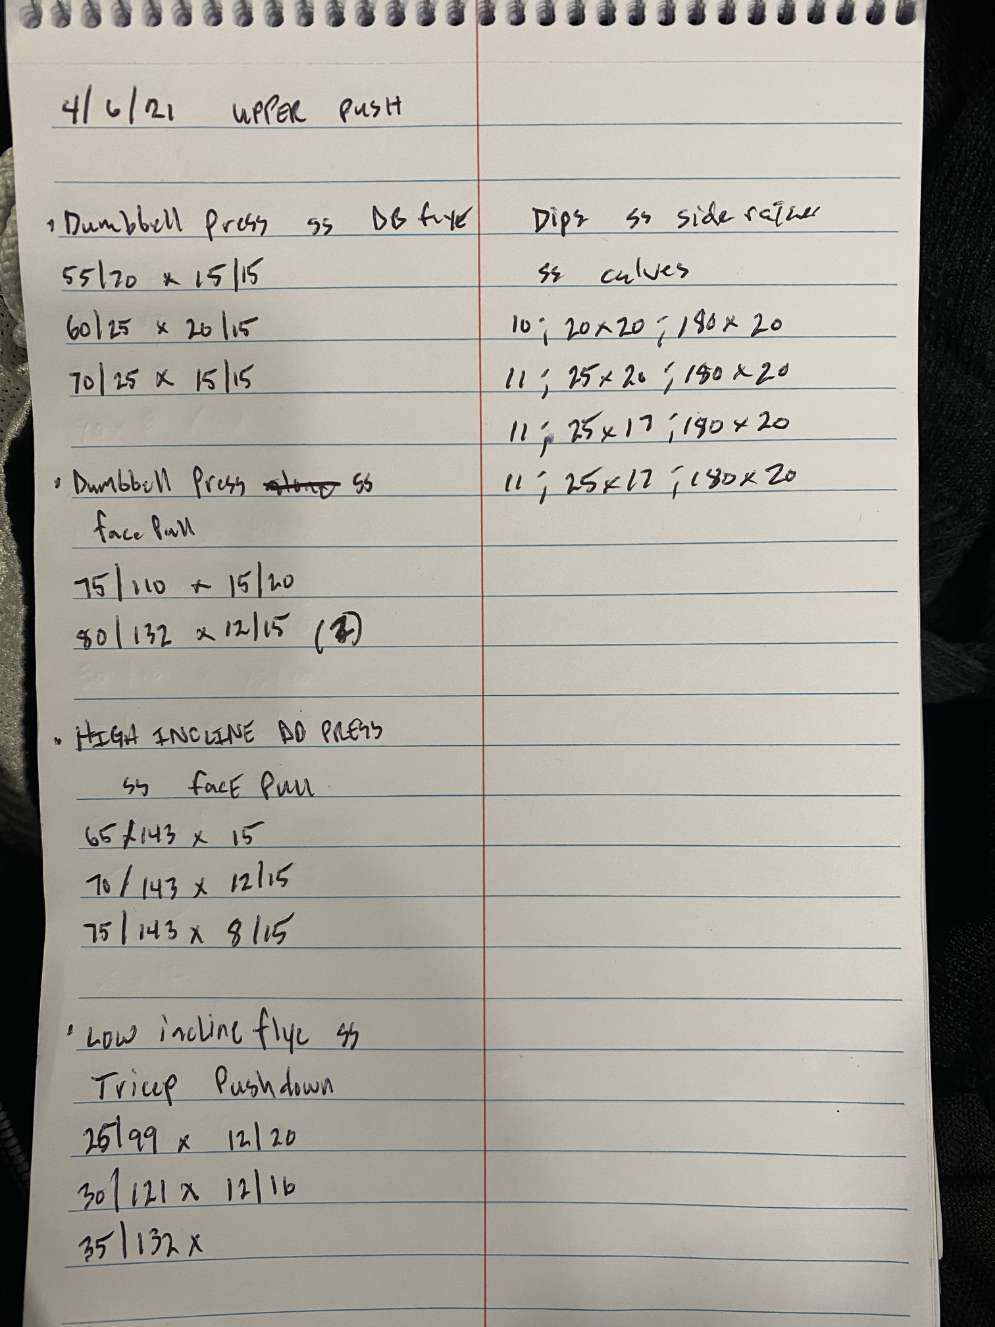 4/6/21 UPPER PUSH
• Dumbbell Press ss DB flye
55/20 x 15/15
60/25 x 20/15
70/25 x 15/15
• Dumbbell Press ss
face Pull
75/110 x 15/20
80/132 x 12/15
• HIGH INCLINE DB PRESS
ss facE Pull
65/143 x 15
70/143 x 12/15
75/143 x 8/15
• LOW incline flye ss
Tricep Pushdown
25/99 x 12/20
30/121 x 12/16
35/132 x
Dips ss side raises
ss calves
10; 20x20; 180x20
11; 25x20; 180x20
11; 25x17; 180x20
11; 25x17; 180x20